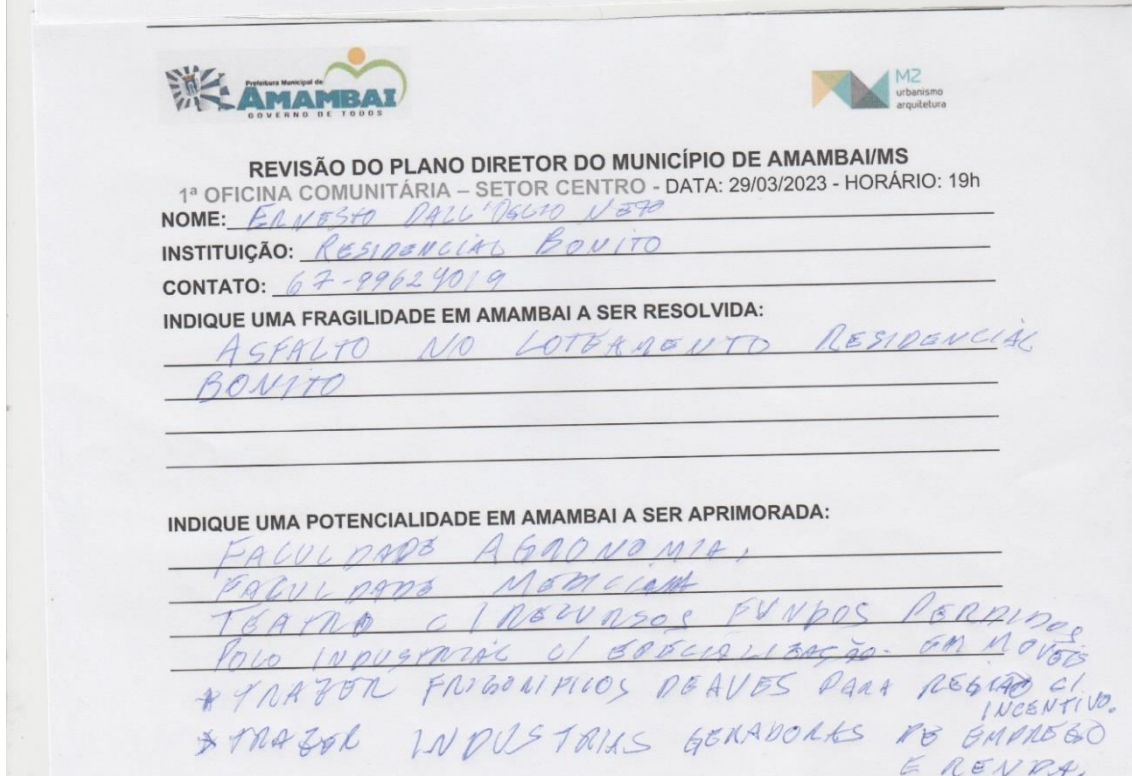 Prefeitura Municipal de
AMAMBAI
GOVERNO DE TODOS
M2
urbanismo
arquitetura
REVISÃO DO PLANO DIRETOR DO MUNICÍPIO DE AMAMBAI/MS
1ª OFICINA COMUNITÁRIA – SETOR CENTRO - DATA: 29/03/2023 - HORÁRIO: 19h
NOME: ERNESTO DALL'OGLIO NETO
INSTITUIÇÃO: RESIDENCIAL BONITO
CONTATO: 67-99624019
INDIQUE UMA FRAGILIDADE EM AMAMBAI A SER RESOLVIDA:
ASFALTO NO LOTEAMENTO RESIDENCIAL
BONITO
INDIQUE UMA POTENCIALIDADE EM AMAMBAI A SER APRIMORADA:
FACULDADE AGRONOMIA,
FACULDADE MEDICINA
TEATRO C/ RECURSOS FUNDOS PERDIDOS
POLO INDUSTRIAL C/ ESPECIALIZAÇÃO - EM MOVEIS
* TRAZER FRIGORIFICOS DE AVES PARA REGIÃO C/
INCENTIVO.
* TRAZER INDUSTRIAS GERADORAS DE EMPREGO
E RENDA.